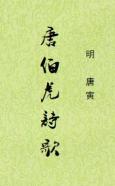 明 唐寅
唐伯虎詩歌